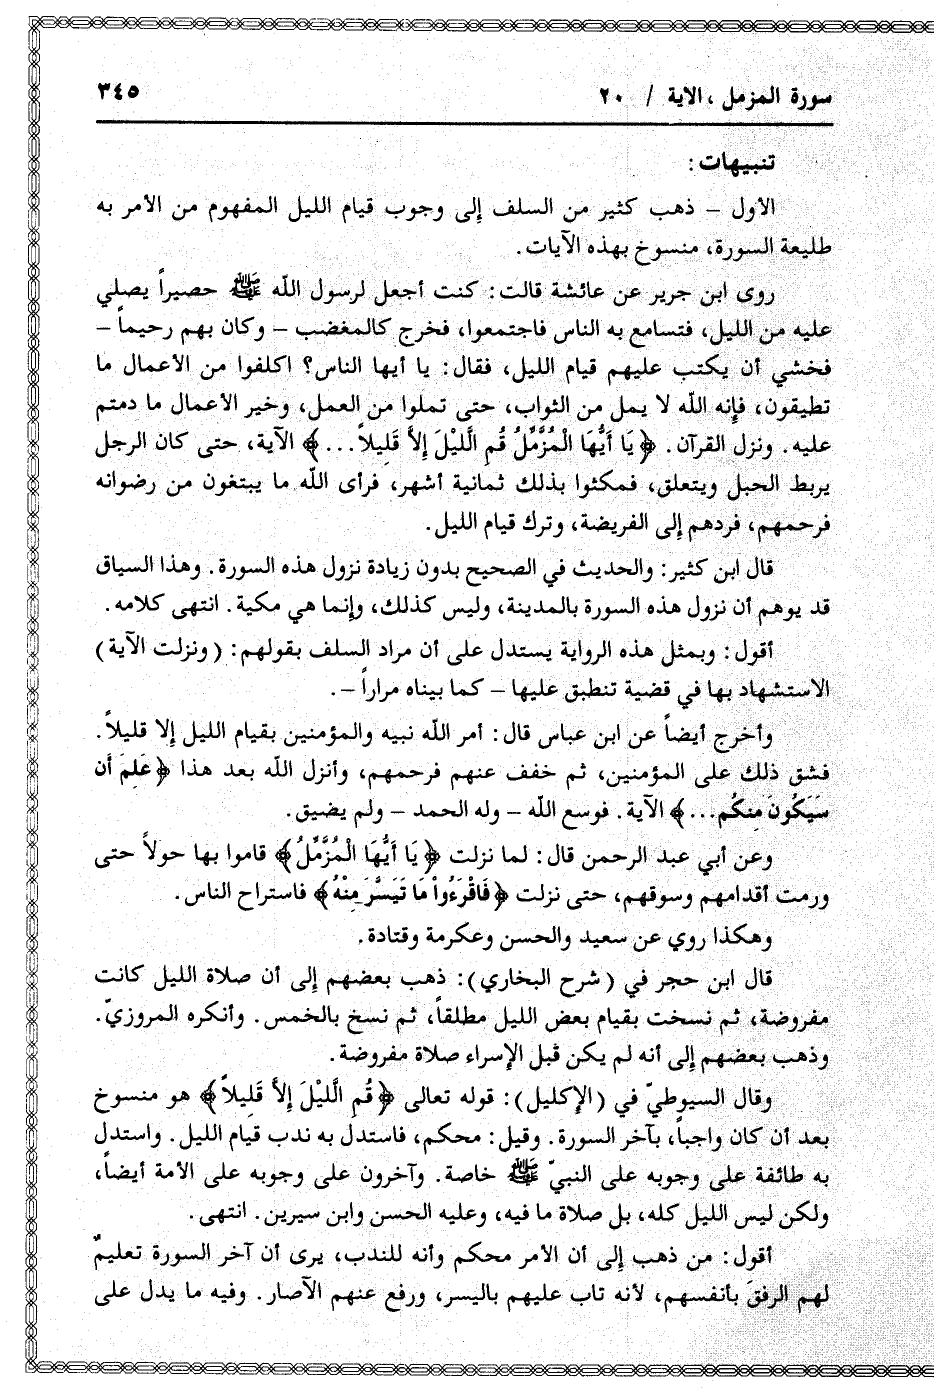 سورة المزمل ، الآية / ٢٠ ٣٤٥
تنبيهات :
الأول – ذهب كثير من السلف إلى وجوب قيام الليل المفهوم من الأمر به
طليعة السورة، منسوخ بهذه الآيات.
روى ابن جرير عن عائشة قالت: كنت أجعل لرسول الله ﷺ حصيراً يصلي
عليه من الليل، فتسامع به الناس فاجتمعوا، فخرج كالمغضب – وكان بهم رحيماً –
فخشي أن يكتب عليهم قيام الليل، فقال: يا أيها الناس؟ اكلفوا من الأعمال ما
تطيقون، فإنه الله لا يمل من الثواب، حتى تملوا من العمل، وخير الأعمال ما دمتم
عليه. ونزل القرآن. ﴿يَا أَيُّهَا الْمُزَّمِّلُ قُمِ الَّليْلَ إِلاَّ قَلِيلاً...﴾ الآية، حتى كان الرجل
يربط الحبل ويتعلق، فمكثوا بذلك ثمانية أشهر، فرأى الله ما يبتغون من رضوانه
فرحمهم، فردهم إلى الفريضة، وترك قيام الليل.
قال ابن كثير: والحديث في الصحيح بدون زيادة نزول هذه السورة. وهذا السياق
قد يوهم أن نزول هذه السورة بالمدينة، وليس كذلك، وإنما هي مكية. انتهى كلامه.
أقول: وبمثل هذه الرواية يستدل على أن مراد السلف بقولهم: (ونزلت الآية)
الاستشهاد بها في قضية تنطبق عليها – كما بيناه مراراً –.
وأخرج أيضاً عن ابن عباس قال: أمر الله نبيه والمؤمنين بقيام الليل إلا قليلاً.
فشق ذلك على المؤمنين، ثم خفف عنهم فرحمهم، وأنزل الله بعد هذا ﴿عَلِمَ أَن
سَيَكُونَ مِنكُم...﴾ الآية. فوسع الله – وله الحمد – ولم يضيق.
وعن أبي عبد الرحمن قال: لما نزلت ﴿يَا أَيُّهَا الْمُزَّمِّلُ﴾ قاموا بها حولاً حتى
ورمت أقدامهم وسوقهم، حتى نزلت ﴿فَاقْرَءُواْ مَا تَيَسَّرَ مِنْهُ﴾ فاستراح الناس.
وهكذا روي عن سعيد والحسن وعكرمة وقتادة.
قال ابن حجر في (شرح البخاري): ذهب بعضهم إلى أن صلاة الليل كانت
مفروضة، ثم نسخت بقيام بعض الليل مطلقاً، ثم نسخ بالخمس. وأنكره المروزيّ.
وذهب بعضهم إلى أنه لم يكن قبل الإسراء صلاة مفروضة.
وقال السيوطيّ في (الإكليل): قوله تعالى ﴿قُمِ الَّليْلَ إِلاَّ قَلِيلاً﴾ هو منسوخ
بعد أن كان واجباً، بآخر السورة. وقيل: محكم، فاستدل به ندب قيام الليل. واستدل
به طائفة على وجوبه على النبيّ ﷺ خاصة. وآخرون على وجوبه على الأمة أيضاً،
ولكن ليس الليل كله، بل صلاة ما فيه، وعليه الحسن وابن سيرين. انتهى.
أقول: من ذهب إلى أن الأمر محكم وأنه للندب، يرى أن آخر السورة تعليمٌ
لهم الرفقَ بأنفسهم، لأنه تاب عليهم باليسر، ورفع عنهم الآصار. وفيه ما يدل على